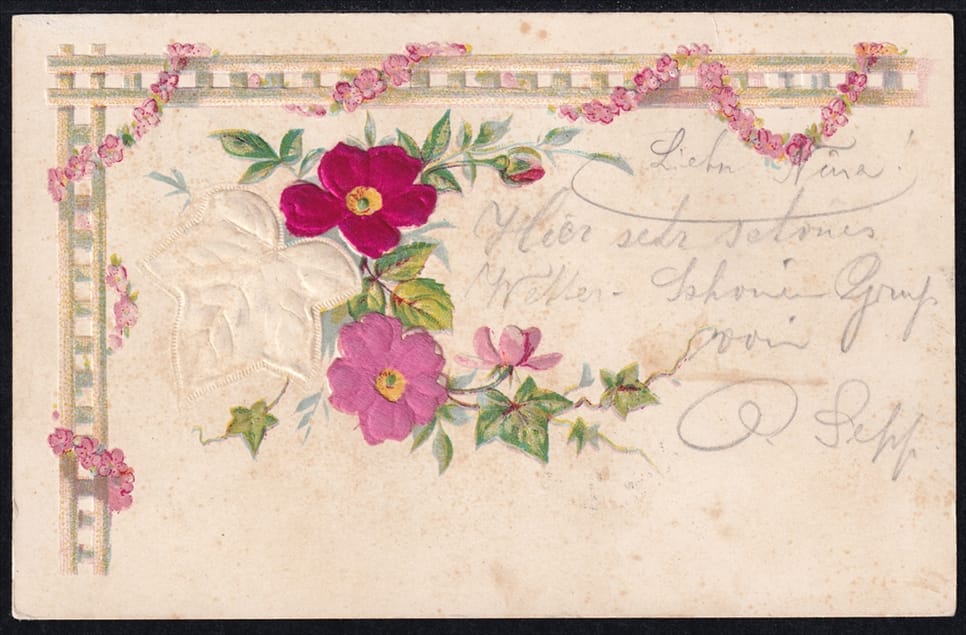 Liebe Nina!
Hier sehr schönes
Wetter - Schönen Gruß
von
Sepp